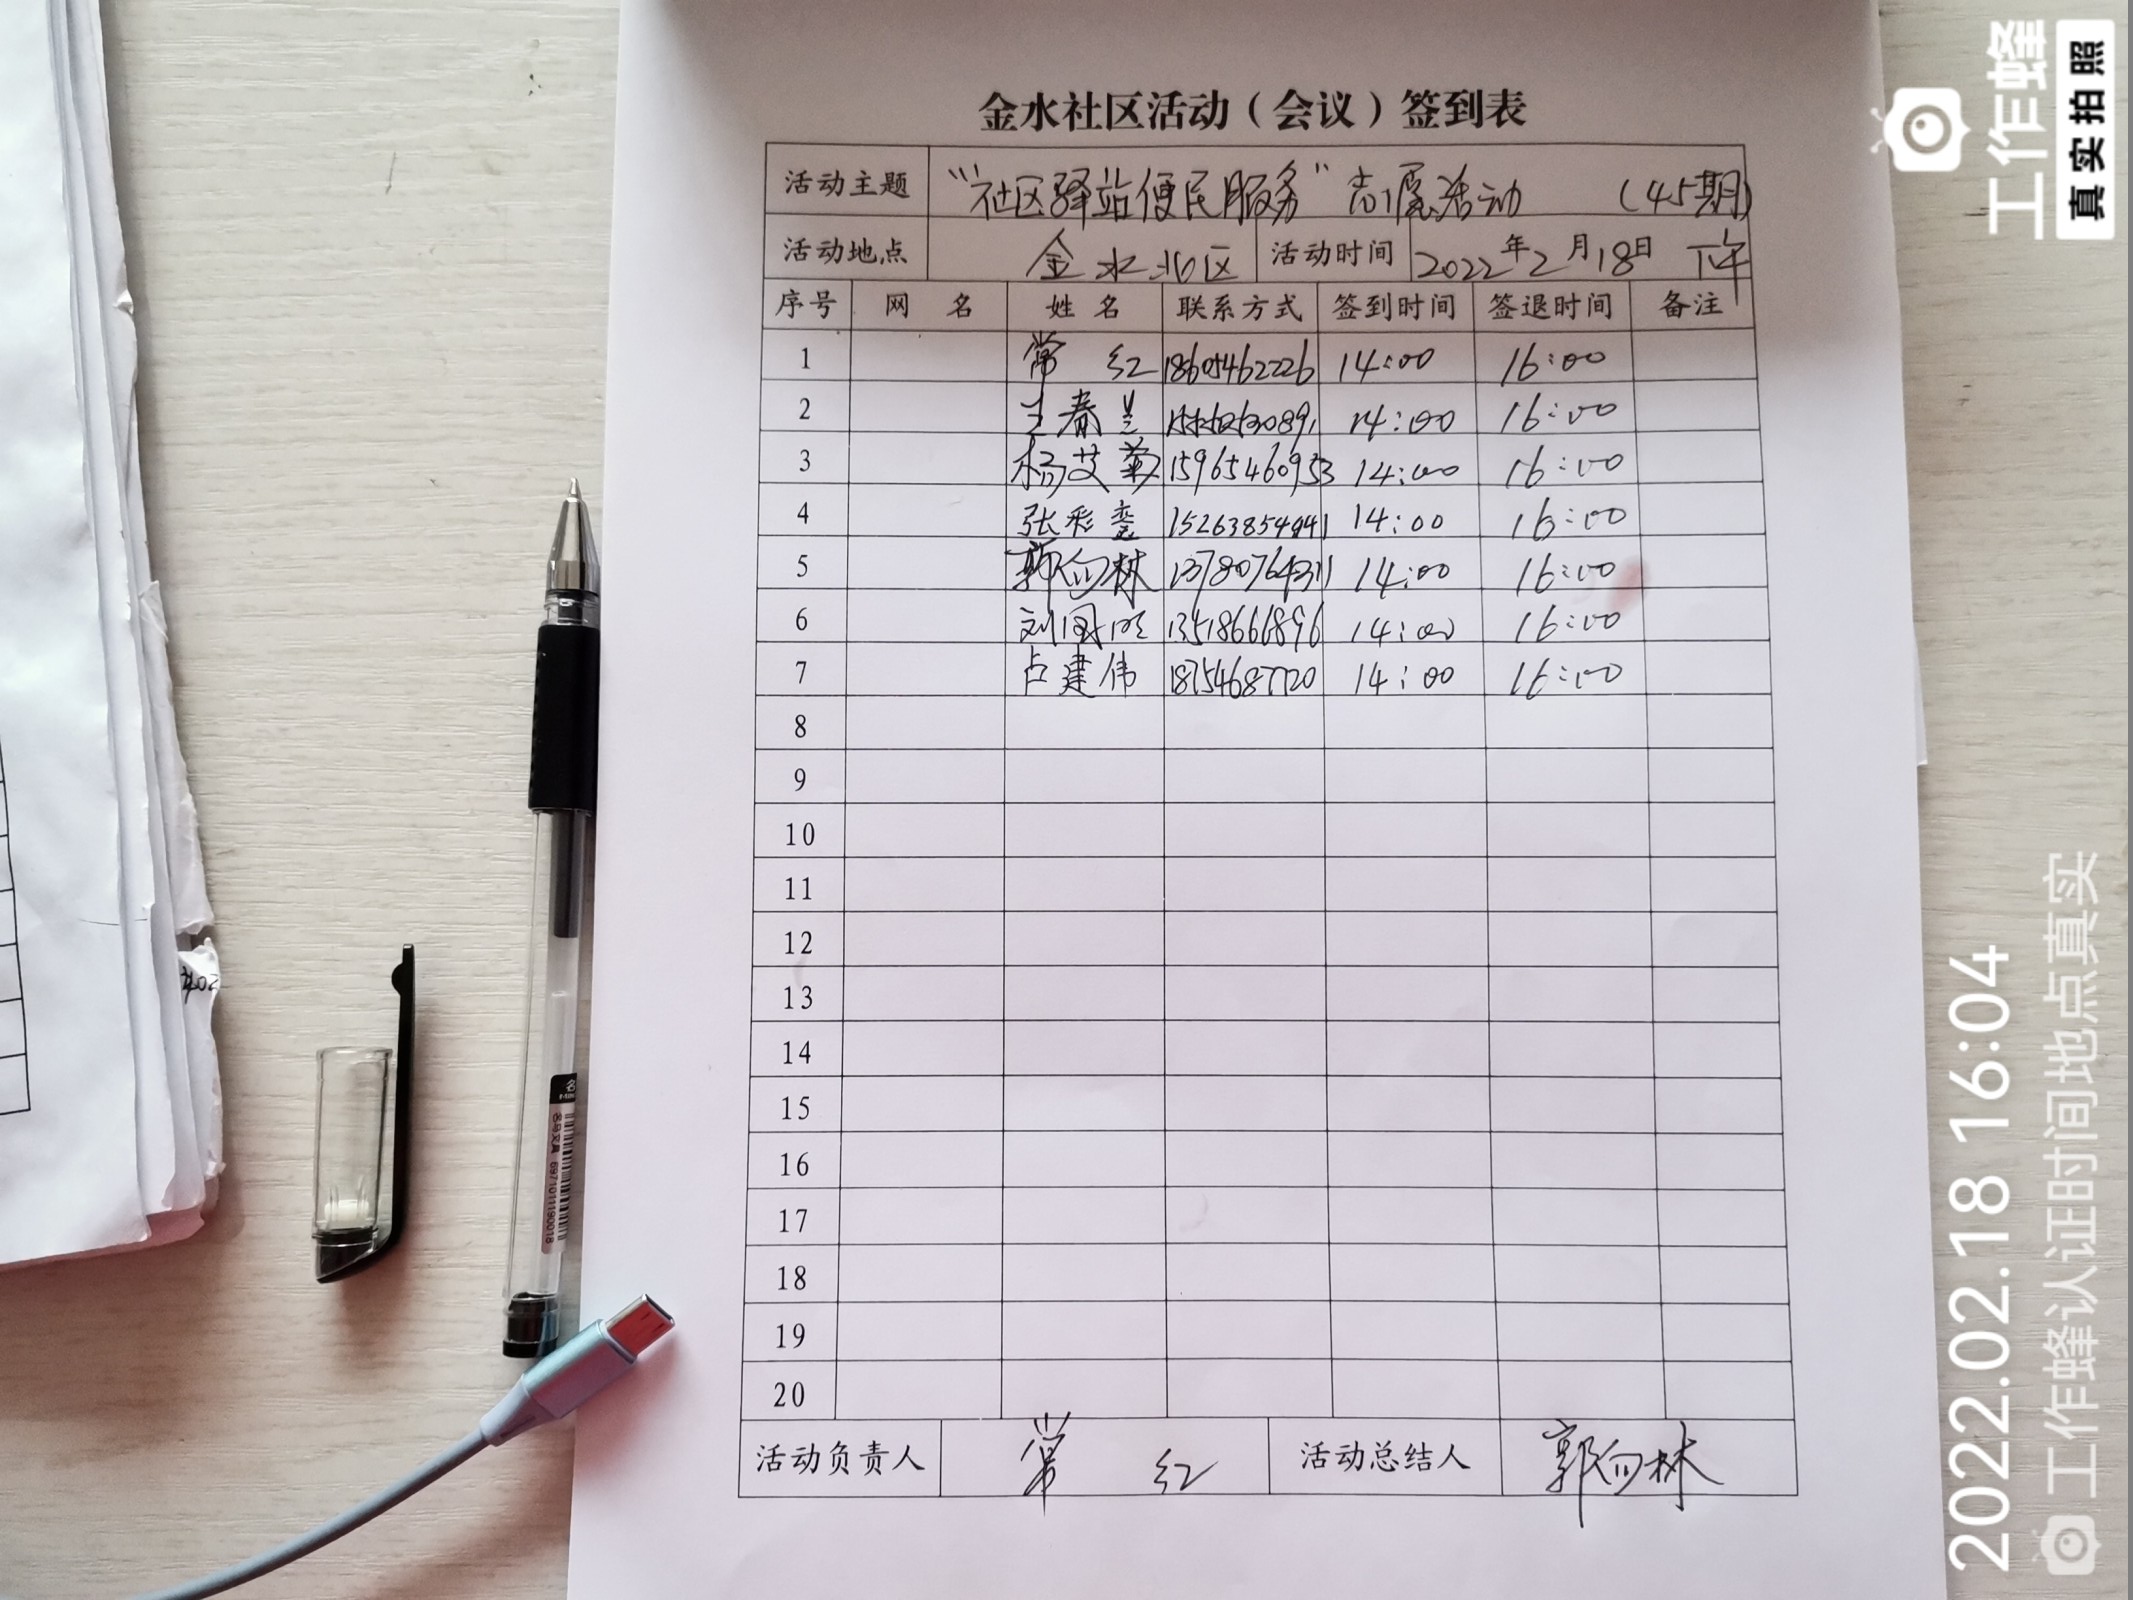 金水社区活动（会议）签到表
活动主题 "社区驿站便民服务"志愿活动 (45期)
活动地点 金水北区 活动时间 2022年2月18日 下午
序号 网 名 姓 名 联系方式 签到时间 签退时间 备注
1 常 红 18605462226 14:00 16:00
2 王春兰 14:00 16:00
3 杨艾菊 15965460953 14:00 16:00
4 张彩銮 15263854941 14:00 16:00
5 郭向林 13780764311 14:00 16:00
6 刘国明 13518666896 14:00 16:00
7 占建伟 18754687720 14:00 16:00
8
9
10
11
12
13
14
15
16
17
18
19
20
活动负责人 常 红 活动总结人 郭向林
工作蜂
真实拍照
2022.02.18 16:04
工作蜂认证时间地点真实
名号文具 6971011190018